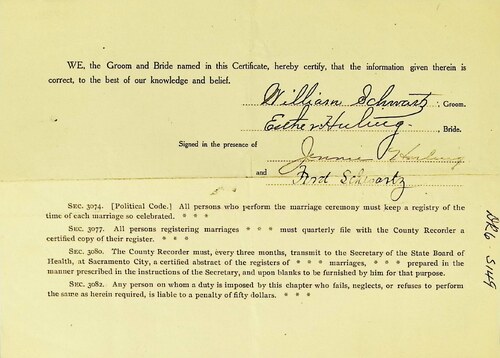 WE, the Groom and Bride named in this Certificate, hereby certify, that the information given therein is
correct, to the best of our knowledge and belief.
William Schwartz, Groom.
Esther Huling, Bride.
Signed in the presence of
Jennie Huling
and Ford Schwartz
SEC. 3074. [Political Code.] All persons who perform the marriage ceremony must keep a registry of the
time of each marriage so celebrated. * * *
SEC. 3077. All persons registering marriages * * * must quarterly file with the County Recorder
a certified copy of their register. * * *
SEC. 3080. The County Recorder must, every three months, transmit to the Secretary of the State Board of
Health, at Sacramento City, a certified abstract of the registers of * * * marriages, * * * prepared in the
manner prescribed in the instructions of the Secretary, and upon blanks to be furnished by him for that purpose.
SEC. 3082. Any person on whom a duty is imposed by this chapter who fails, neglects, or refuses to perform
the same as herein required, is liable to a penalty of fifty dollars. * * *